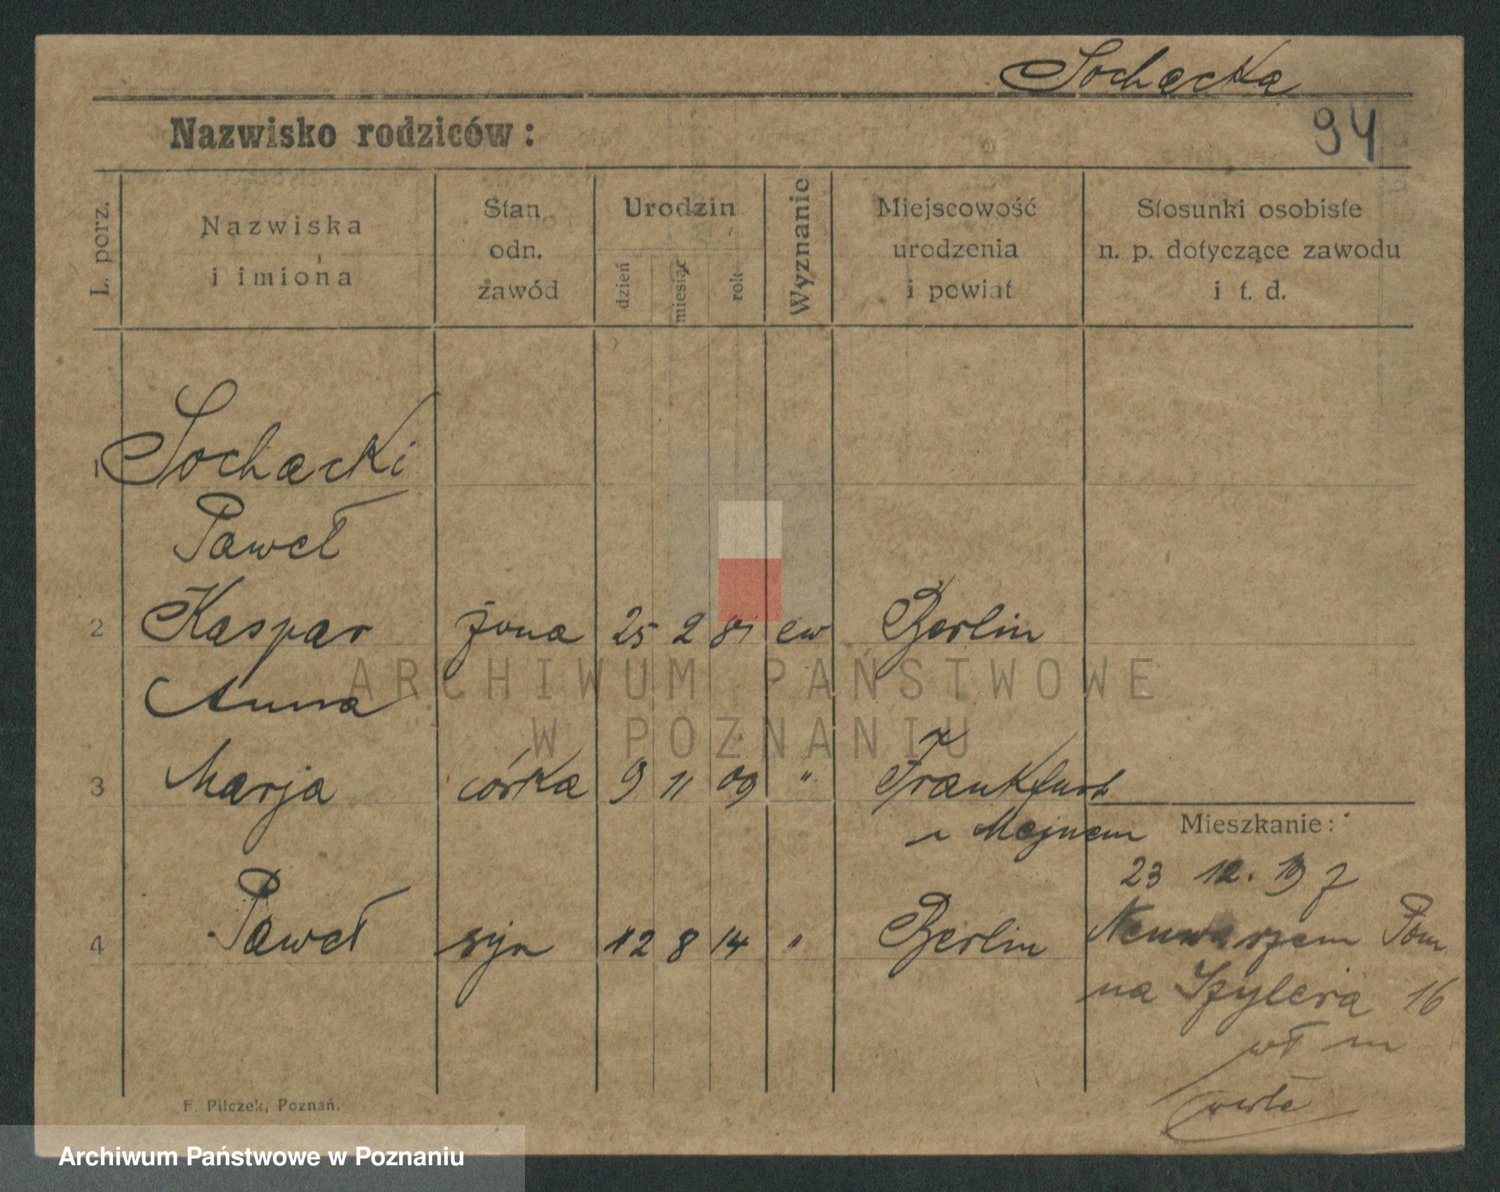 Sochacka
94
Nazwisko rodziców:
L. porz.
Nazwiska
i imiona
Stan
odn.
zawód
Urodzin
dzień
miesiąc
rok
Wyznanie
Miejscowość
urodzenia
i powiat
Stosunki osobiste
n. p. dotyczące zawodu
i t. d.
1 Sochacki
Paweł
2 Kaspar żona 25 2 81 ew Berlin
Anna
3 Marja córka 9 11 09 " Frankfurt
n Mejnem
Mieszkanie:
23 12. 19 z
4 Paweł syn 12 8 14 " Berlin
Pom
na Szylera 16
wł m
verte
F. Pilczek, Poznań.
ARCHIWUM PAŃSTWOWE
W POZNANIU
Archiwum Państwowe w Poznaniu